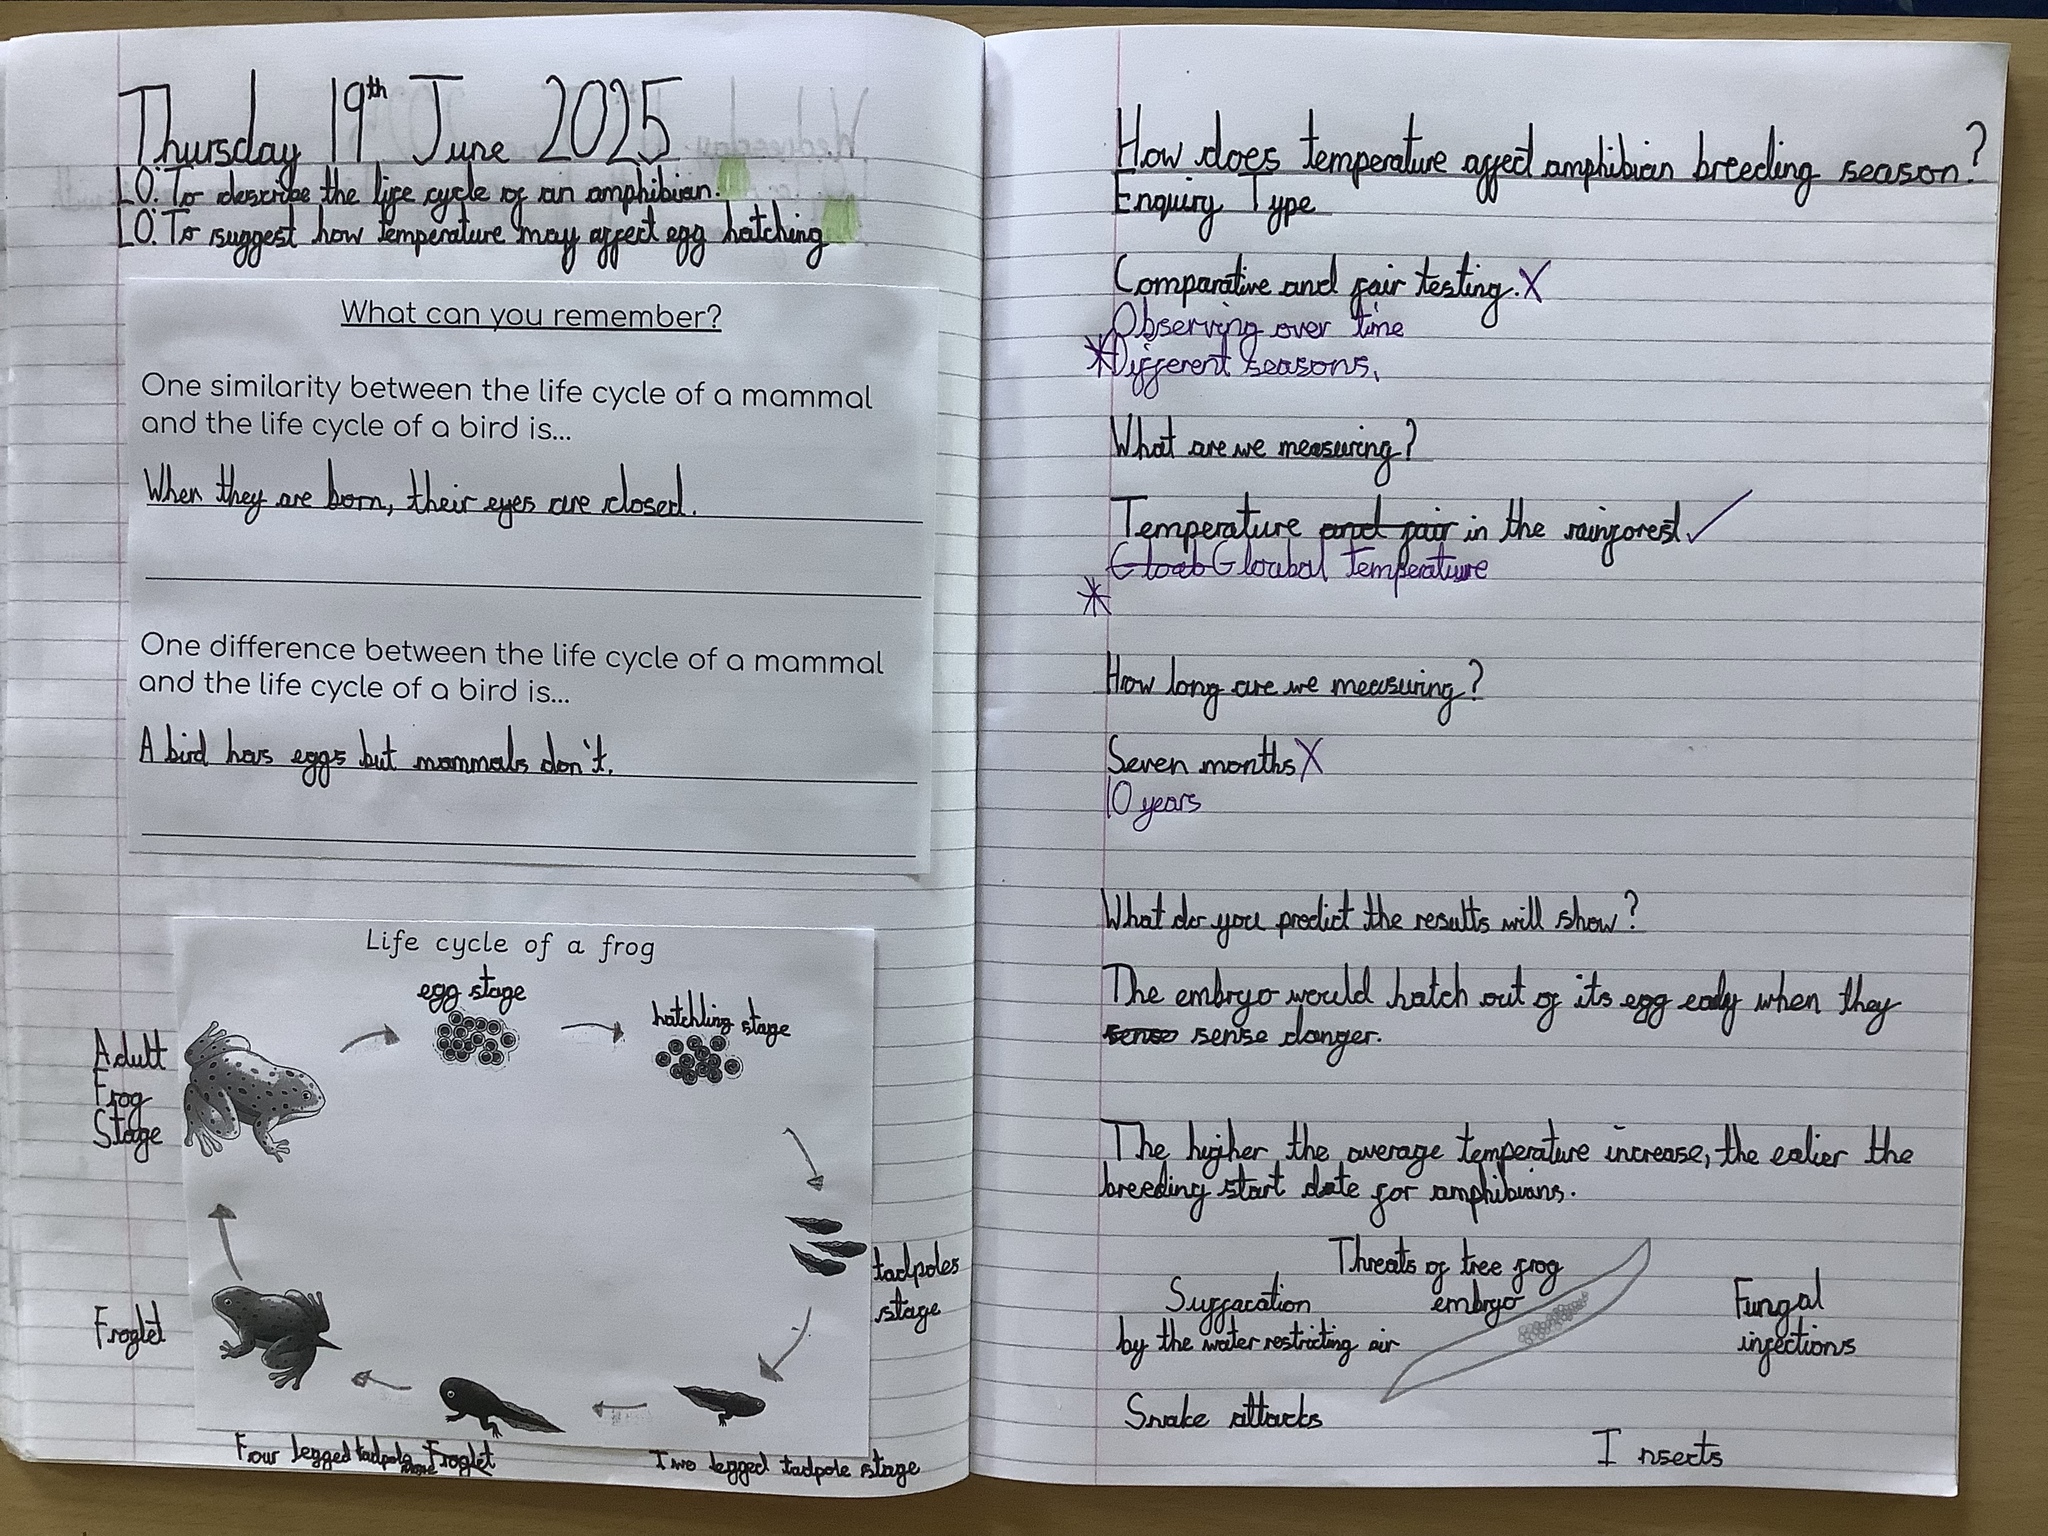 Thursday 19th June 2025
LO: To describe the life cycle of an amphibian.
LO: To suggest how temperature may affect egg hatching
What can you remember?
One similarity between the life cycle of a mammal
and the life cycle of a bird is...
When they are born, their eyes are closed.
One difference between the life cycle of a mammal
and the life cycle of a bird is...
A bird has eggs but mammals don't.
Life cycle of a frog
egg stage
hatchling stage
Adult
Frog
Stage
tadpoles
stage
Froglet
Four legged tadpole Froglet
Two legged tadpole stage
How does temperature affect amphibian breeding season?
Enquiry Type
Comparative and fair testing. X
Observing over time
*Different seasons,
What are we measuring?
Temperature and fair in the rainforest ✓
Gloab Gloubal temperature
*
How long are we measuring?
Seven months X
10 years
What do you predict the results will show?
The embryo would hatch out of its egg eady when they
sense sense danger.
The higher the average temperature increase, the ealier the
breeding start date for amphibians.
Threats of tree frog
embryo
Suffacation
by the water restricting air
Fungal
infections
Snake attacks
Insects